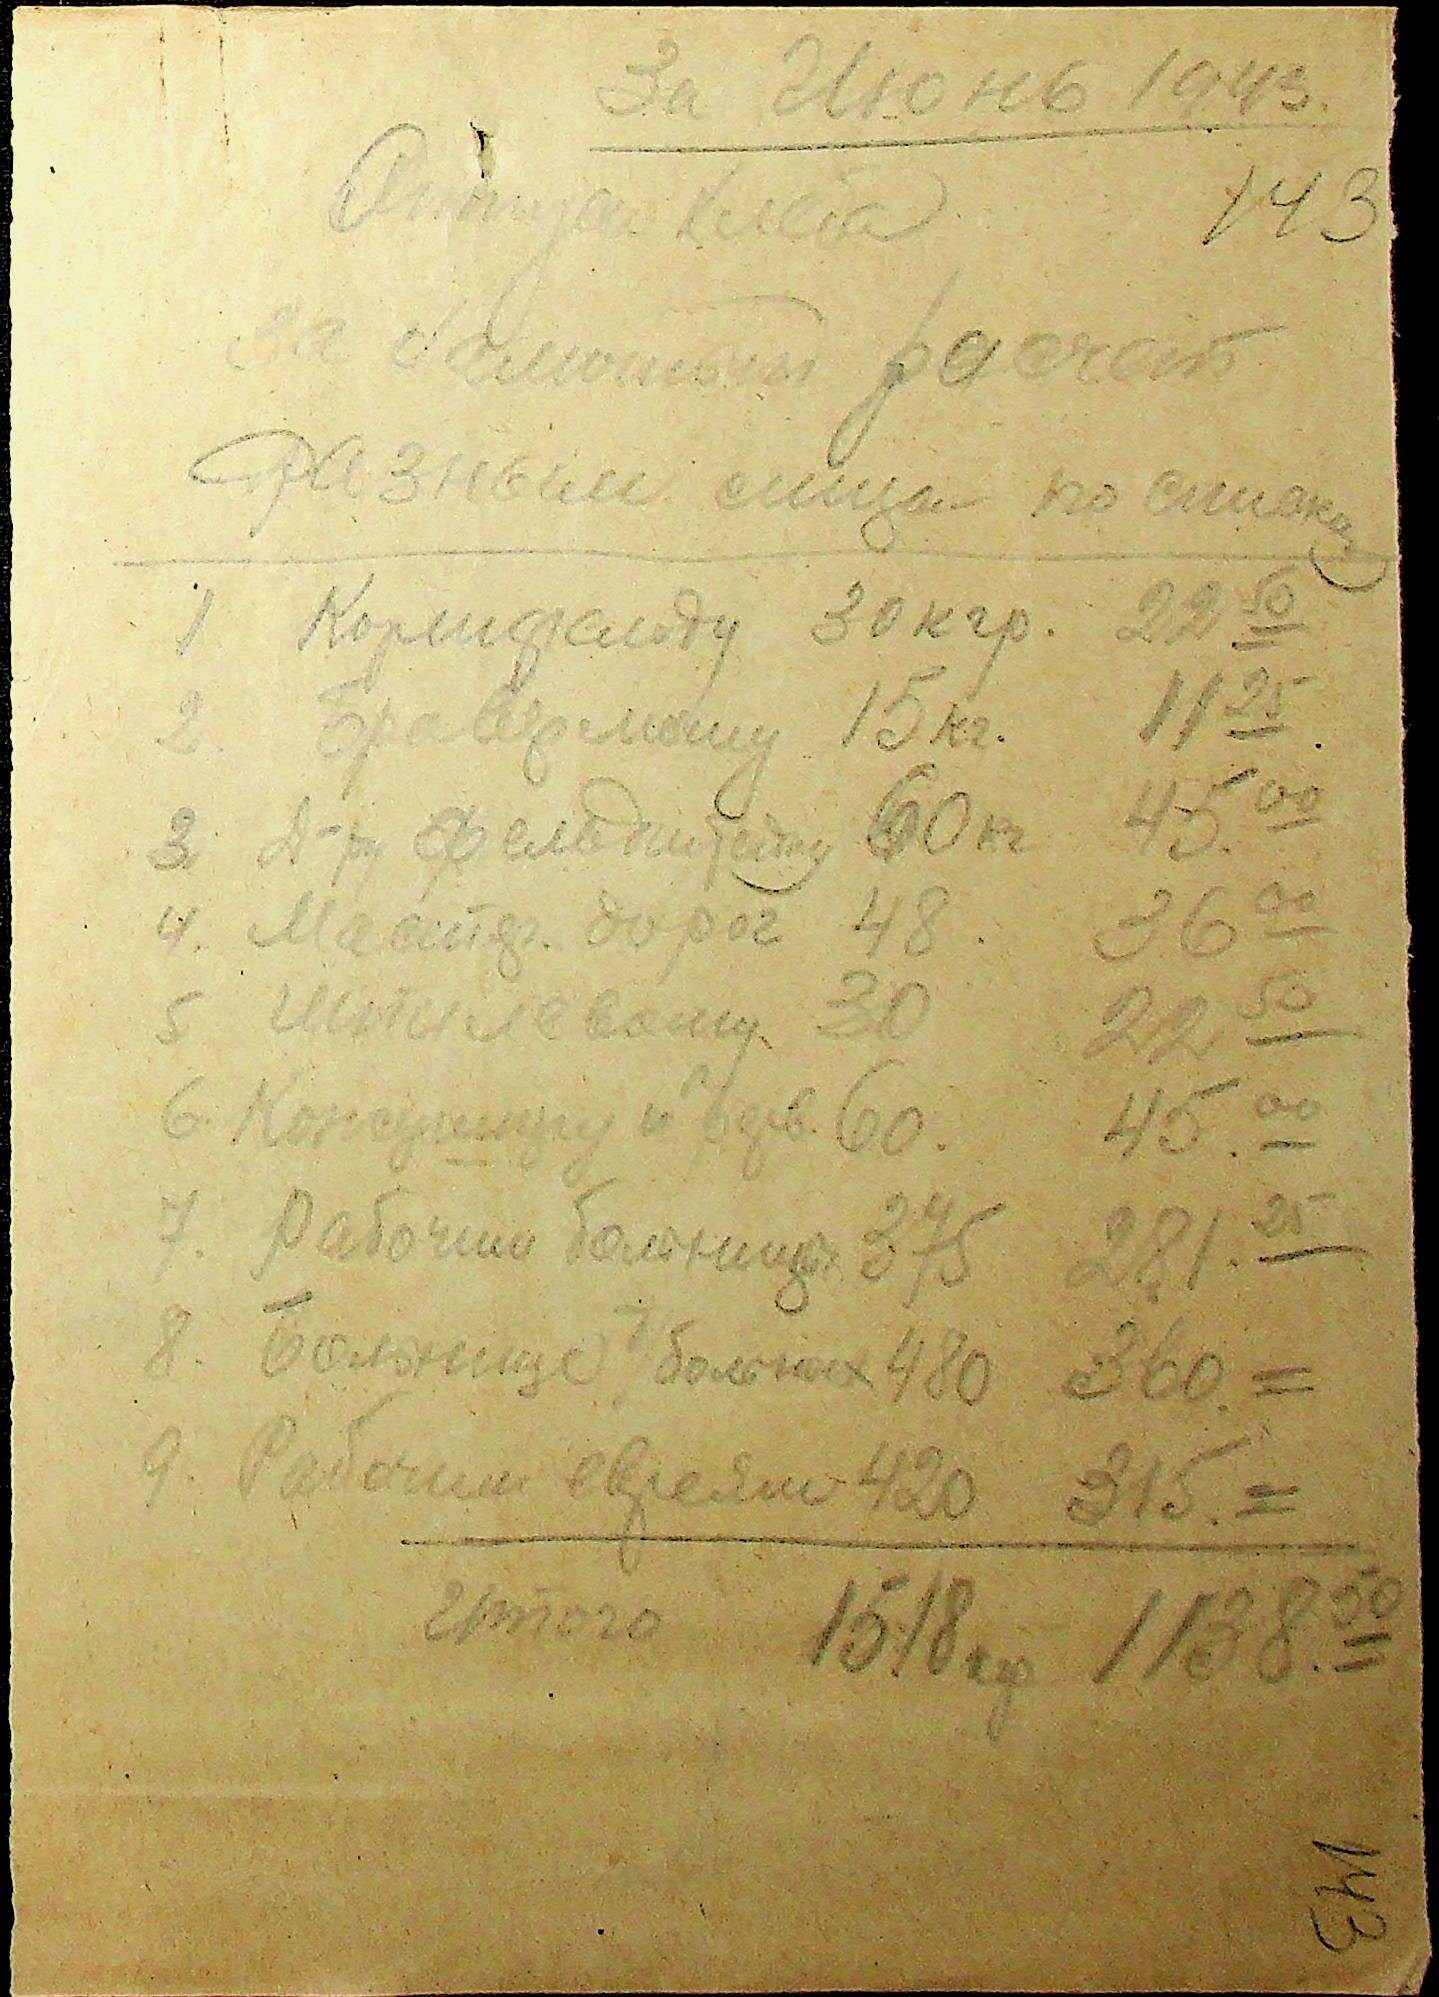 За Июнь 1943.
143
Отпуск хлеба
за расчет
Разным лица по списку
1 30 кгр. 22 50
2. Браверману 15 кг. 11 25
3. Д-ру 60 кг 45.00
4. дорог 48. 36 00
5 30 22 50
6. и 60. 45.00
7. Рабочим больниц. 375 281.25
8. Больнице больных 480 360. =
9. Рабочим евреям 420 315. =
Итого 1518 кгр 1138.50
143